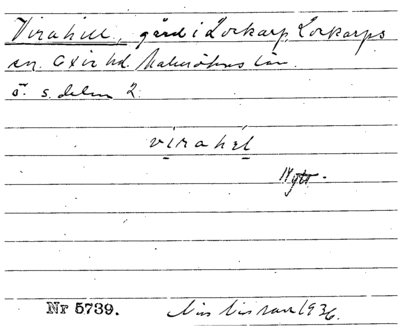 Virahill, gård i Lockarp Lockarps
sn. Oxie hd. Malmöhus län.
ö. s. delen 2.
virahel
Nytt.
Nr 5739.
1936.